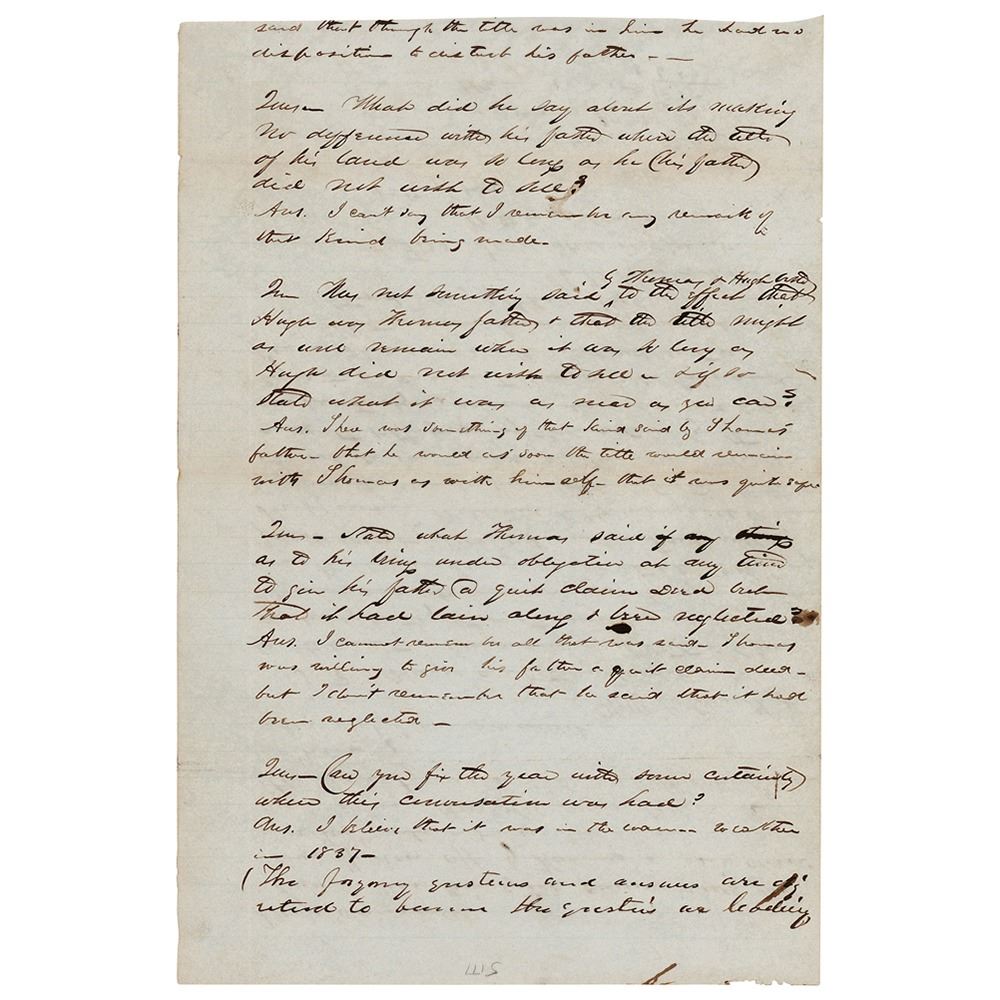 said that though the title was in him he had no
disposition to disturb his father - -
Ques - What did he say about its making
no difference with his father where the title
of his land was so long as he (his father)
did not wish to sell?
Ans. I can't say that I remember any remark of
that kind being made -
by Thomas & Hugh both
Ques Was not something said to the effect that
Hugh was Thomas father & that the title might
as well remain where it was so long as
Hugh did not wish to sell - & if so
state what it was as near as you can?
Ans. There was something of that kind said by Thomas'
father - that he would as soon the title would remain
with Thomas as with himself - that it was quite safe
Ques - State what Thomas said if any thing
as to his being under obligation at any time
to give his father a quit claim deed but
that it had lain along & been neglected?
Ans. I cannot remember all that was said - Thomas
was willing to give his father a quit claim deed -
but I don't remember that he said that it had
been neglected -
Ques - Can you fix the year with some certainty
when this conversation was had?
Ans. I believe that it was in the warm weather
in 1837 -
(The forgoing questions and answers are ob
jected to because the questions are leading